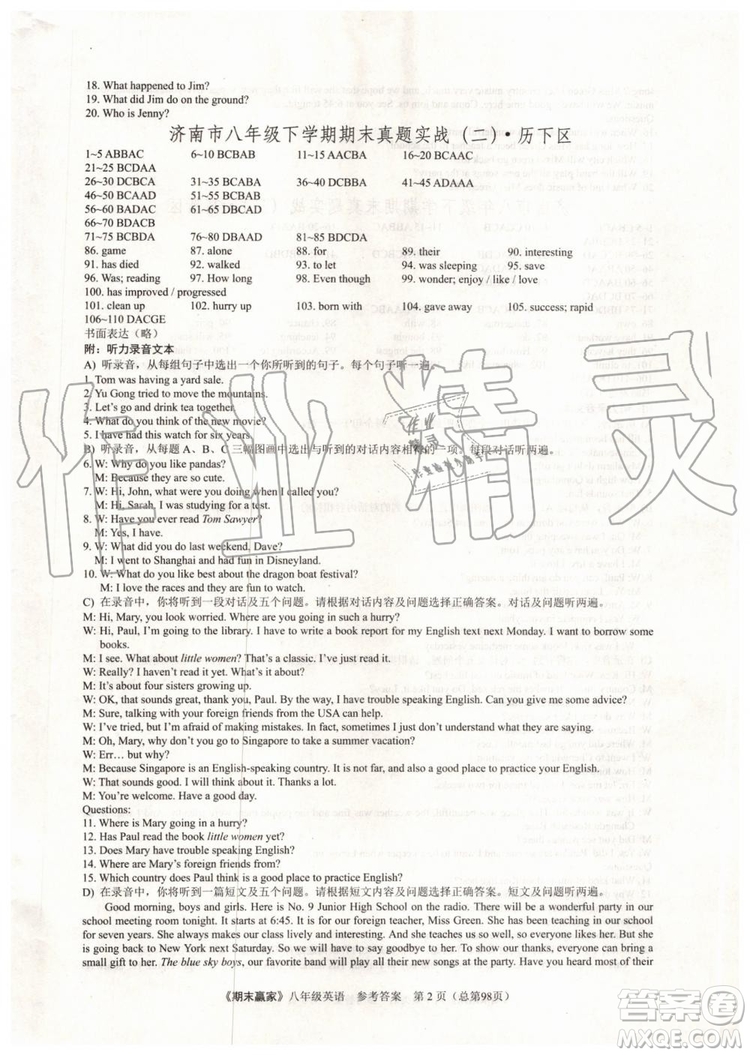 18. What happened to Jim?
19. What did Jim do on the ground?
20. Who is Jenny?
济南市八年级下学期期末真题实战（二）·历下区
1~5 ABBAC 6~10 BCBAB 11~15 AACBA 16~20 BCAAC
21~25 BCDAA
26~30 DCBCA 31~35 ABCBA 36~39 DBBA 41~45 ADAAA
46~50 BCAAD 51~55 BCBCB
56~60 BADAC 61~65 DBCAD
66~70 BDCBA
71~75 BCBDA 76~80 DBAAD 81~85 BDCDA
86. game 87. alone 88. foreign 89. their 90. interesting
91. has died 92. walked 93. to let 94. was sleeping 95. save
96. Was; reading 97. How long 98. Even though 99. wonder; enjoy / like / love
100. has improved / progressed
101. clean up 102. hurry up 103. born with 104. gave away 105. success; rapid
106~110 DACGE
书面表达（略）
附：听力录音文本
A) 听录音，从每组句子中选出一个你所听到的句子。每个句子听一遍。
1. Tom was having a yard sale.
2. Yu Gong tried to move the mountains.
3. Let's go and drink tea together.
4. What do you think of the new movie?
5. I have had this watch for six years.
B) 听录音，从每题 A、B、C 三幅图画中选出与听到的对话内容相符的一项。每段对话听两遍。
6. W: Why do you like pandas?
M: Because they are so cute.
7. W: Hi, John, what were you doing when I called you?
M: Hi, Sarah, I was studying for a test.
8. W: Have you ever read Tom Sawyer?
M: Yes, I have.
9. W: What did you do last weekend, Dave?
M: I went to Shanghai and had fun in Disneyland.
10. W: What do you like best about the dragon boat festival?
M: I love the races and they are fun to watch.
C) 在录音中，你将听到一段对话及五个问题。请根据对话内容及问题选择正确答案。对话及问题听两遍。
M: Hi, Mary, you look worried. Where are you going in such a hurry?
W: Hi, Paul, I'm going to the library. I have to write a book report for my English text next Monday. I want to borrow some books.
M: I see. What about little women? That's a classic. I've just read it.
W: Really? I haven't read it yet. What's it about?
M: It's about four sisters growing up.
W: OK, that sounds great, thank you, Paul. By the way, I have trouble speaking English. Can you give me some advice?
M: Sure, talking with your foreign friends from the USA can be helpful.
W: I've tried, but I'm afraid of making mistakes. For instance, sometimes I just don't understand what they are saying.
M: Oh, Mary, why don't you go to Singapore to take a summer vacation?
W: Err… but why?
M: Because Singapore is an English-speaking country. It is not far, and also a good place to practice your English.
W: That sounds good. I'll think about it. Thanks a lot.
M: You're welcome. Have a good day.
Questions:
11. Where is Mary going in a hurry?
12. Has Paul read the book little women yet?
13. Does Mary have trouble speaking English?
14. Where are Mary's foreign friends from?
15. Which country does Paul think is a good place to practice English?
D) 在录音中，你将听到一篇短文及五个问题。请根据短文内容及问题选择正确答案。短文及问题听两遍。
Good morning, boys and girls. Here is No. 9 Junior High School on the radio. There will be a wonderful party in our
school meeting room tonight. It starts at 6:45. It is for our foreign teacher, Miss Green. She has worked in our school for
seven years. She always makes her classes lively and interesting. And she teaches us so well that we all love her. But she is
going back to New York next Saturday. So we will have to say goodbye to her. To show our thanks, we are going to bring a
small gift to her. The blue sky boys, our school band, will sing many songs at the party. They're so popular that most
《期末赢家》八年级英语 参考答案 第 2 页（总第98页）
作业精灵
答案圈
MXQE.COM